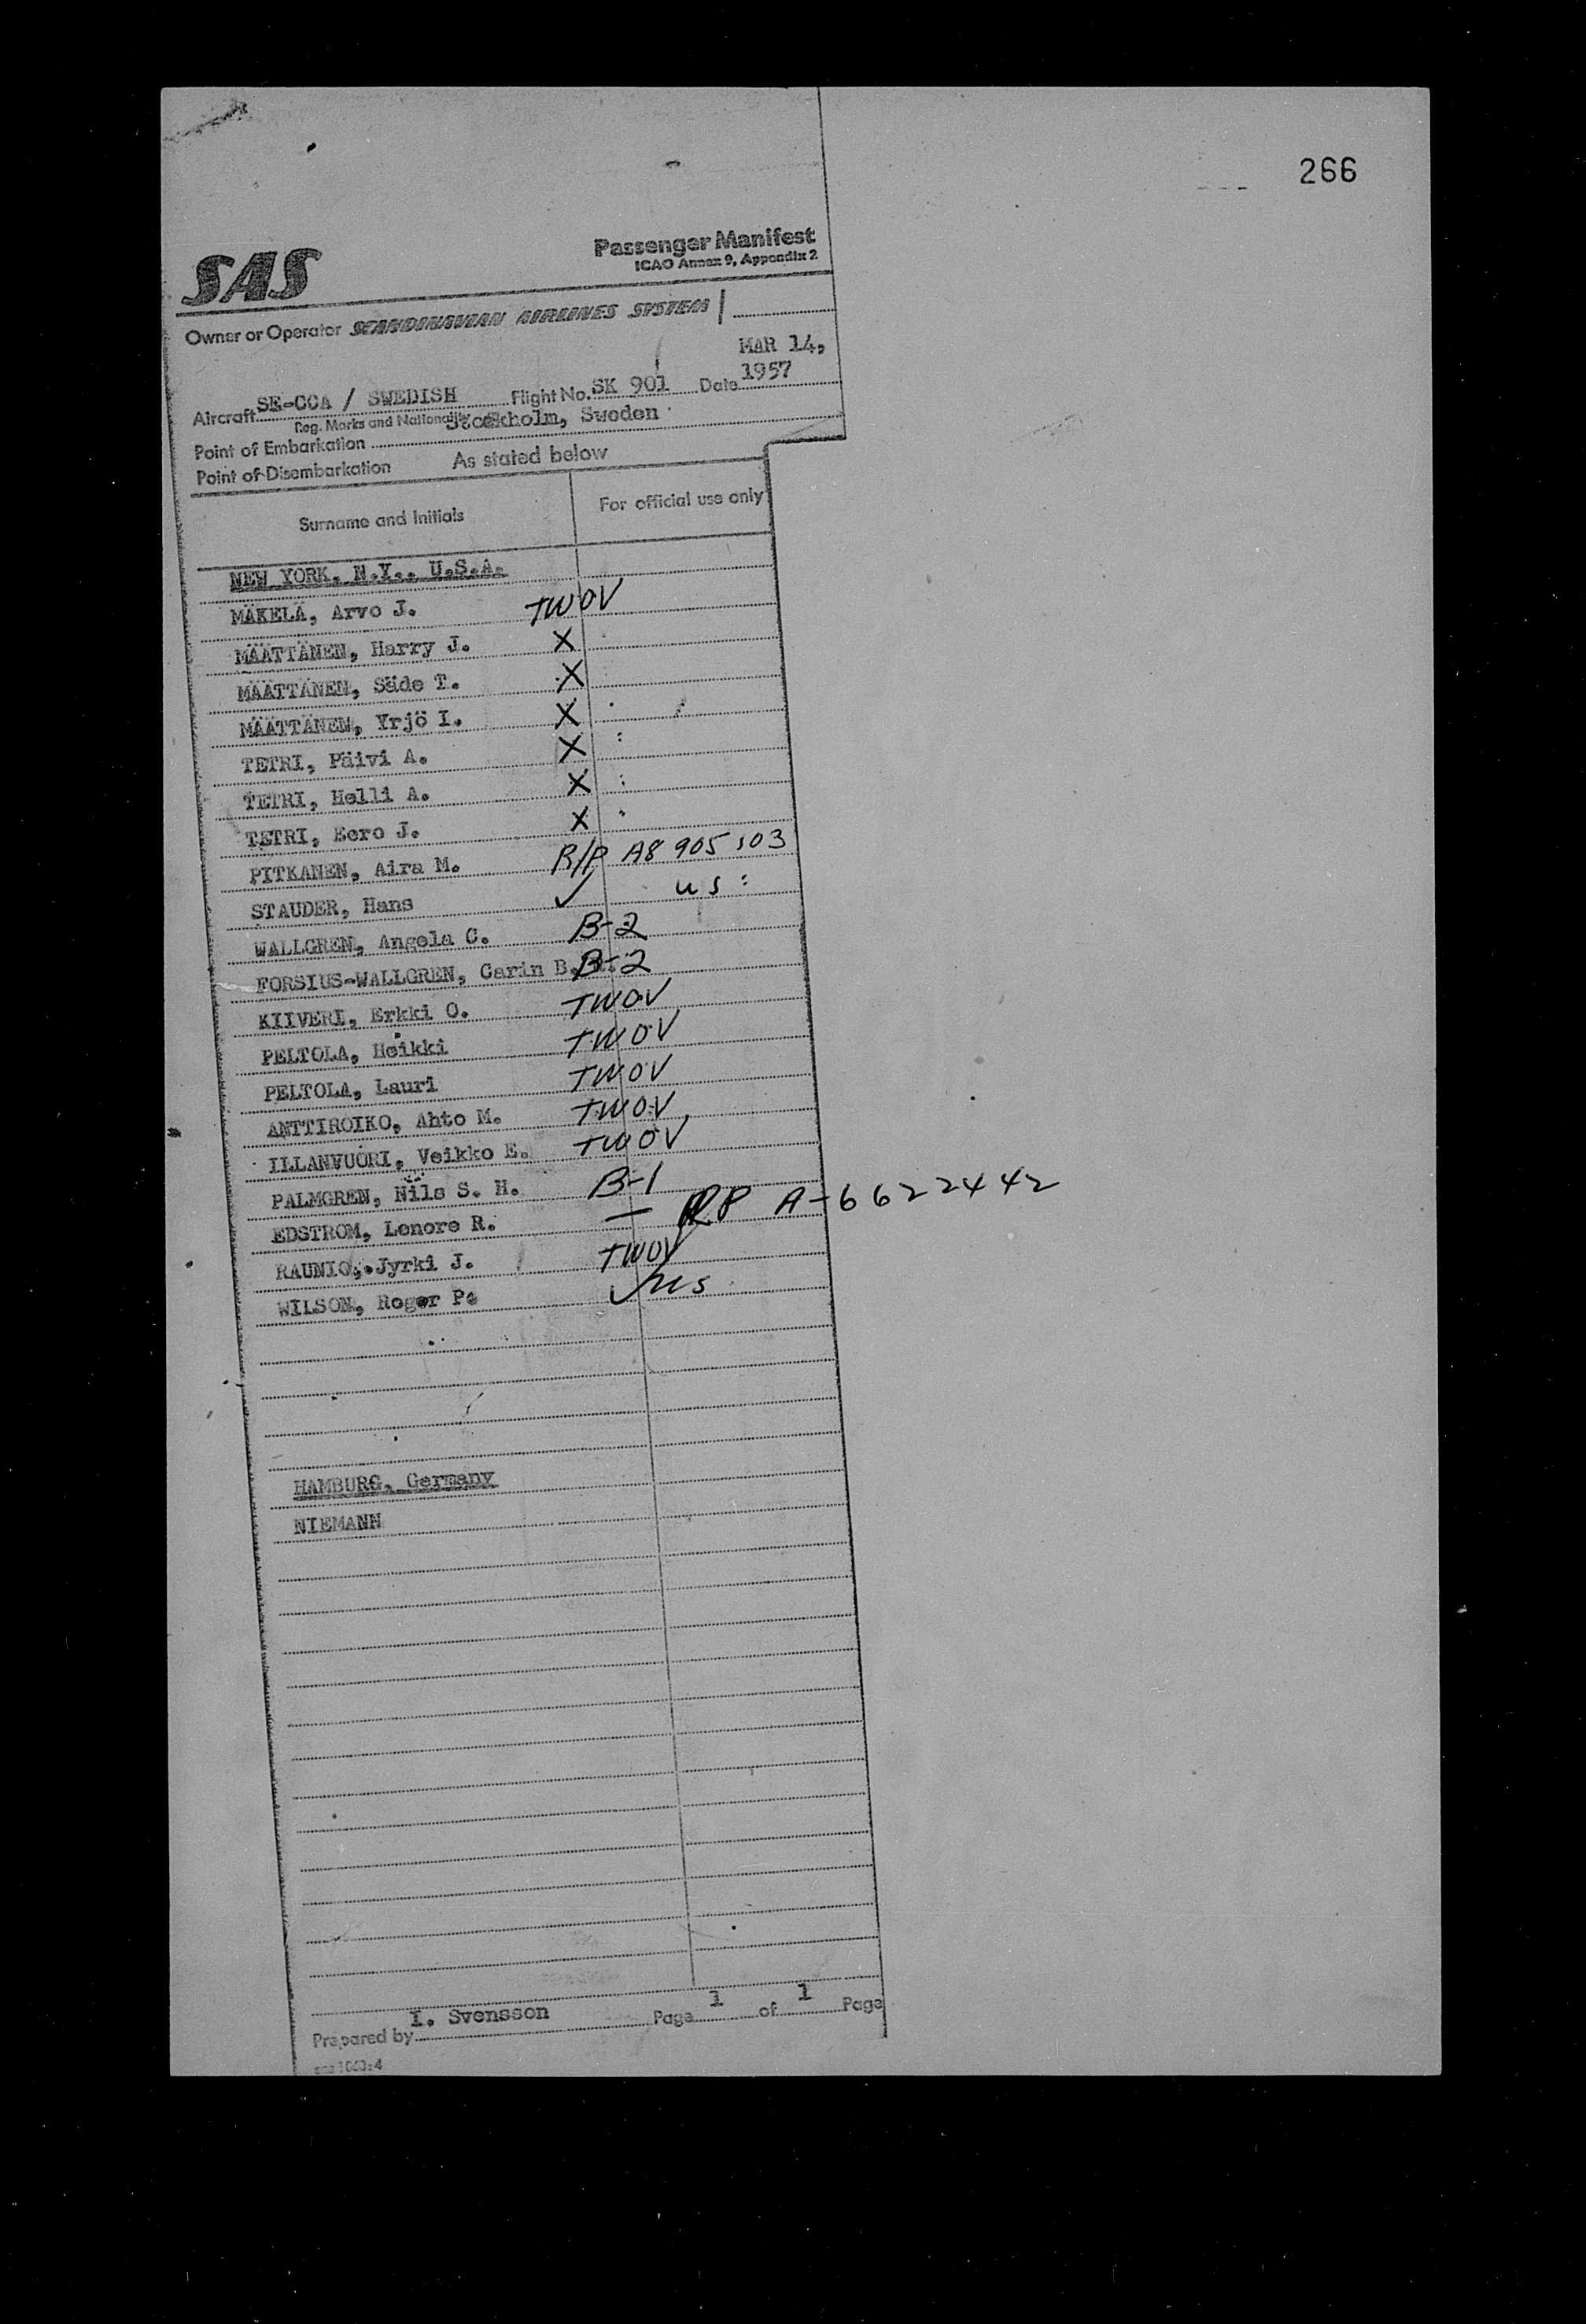 266
SAS
Passenger Manifest
ICAO Annex 9, Appendix 2
Owner or Operator SCANDINAVIAN AIRLINES SYSTEM
MAR 14,
Aircraft SE-CCA / SWEDISH Flight No. SK 901 Date 1957
Reg. Marks and Nationality
Point of Embarkation Stockholm, Sweden
Point of Disembarkation As stated below
Surname and Initials For official use only
NEW YORK, N.Y., U.S.A.
MÄKELÄ, Arvo J. TWOV
MÄÄTTÄNEN, Harry J. X
MÄÄTTÄNEN, Säde T. X
MÄÄTTÄNEN, Yrjö I. X
TETRI, Päivi A. X
TETRI, Helli A. X
TETRI, Eero J. X
PITKANEN, Aira M. R/P A8 905 103
STAUDER, Hans ✓ US
WALLGREN, Angela C. B-2
FORSIUS-WALLGREN, Carin B. B-2
KIIVERI, Erkki O. TWOV
PELTOLA, Heikki TWOV
PELTOLA, Lauri TWOV
ANTTIROIKO, Ahto M. TWOV
ILLANVUORI, Veikko E. TWOV
PALMGREN, Nils S. H. B-1
EDSTROM, Lenore R. — RP A-6622442
RAUNIO, Jyrki J. TWOV
WILSON, Roger P. ✓ US
HAMBURG, Germany
NIEMANN
Prepared by I. Svensson Page 1 of 1 Page